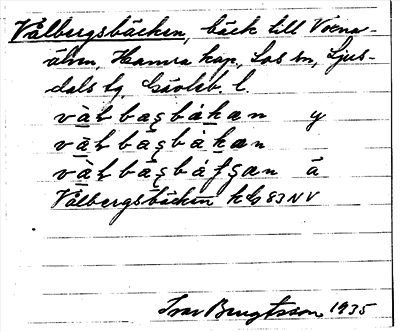 Vålbergsbäcken, bäck till Voxna-
älven, Hamra kap, Los sn, Ljus-
dals tg. Gävleb. l.
vàḷbasbákan y
vàḷbasbákan
vàḷbasbáfsan ä
Vålbergsbäcken hG 83 NV
Ivar Bengtsson 1935